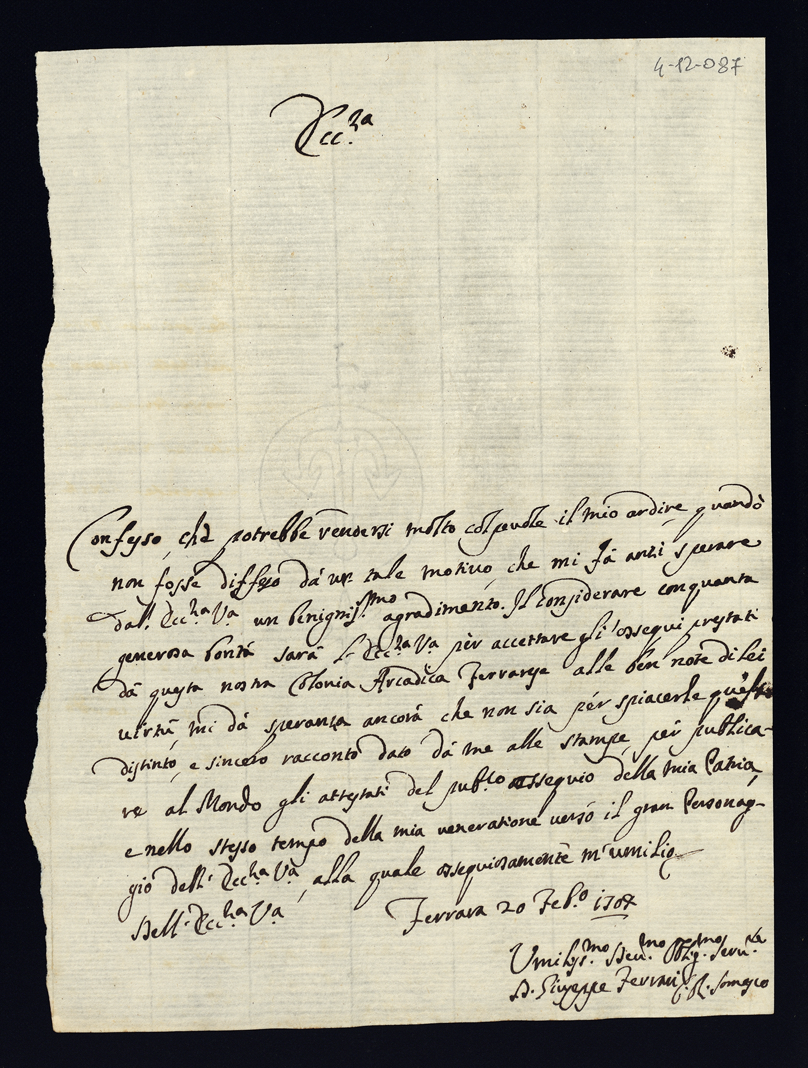 4-12-087
Ecc.za
Confesso, che potrebbe rendersi molto colpevole il mio ardire quando
non fosse diffeso da un tale motivo, che mi fà anzi sperare
dall' Ecc.za Va un benigniss.mo agradimento. Il considerare con quanta
generosa bontà sarà l' Ecc.za Va per accettare gl'ossequi prestati
dà questa nostra Colonia Arcadica Ferrarese alle ben note di Lei
virtù, mi dà speranza ancora che non sia pèr spiacerle questo
distinto, e sincero racconto dato dà me alle stampe, pér publica-
re al Mondo gli attestati del pub.co ossequio della mia Patria,
e nello stesso tempo della mia veneratione verso il gran Personag-
gio dell' Ecc.za Va, alla quale ossequiosamente m'umilio
Dell' Ecc.za Va
Ferrara 20 Feb.o 1707
Umiliss.mo Dev.mo Oblig.mo Serv.re
D. Giuseppe Ferrari C. R. Somasco